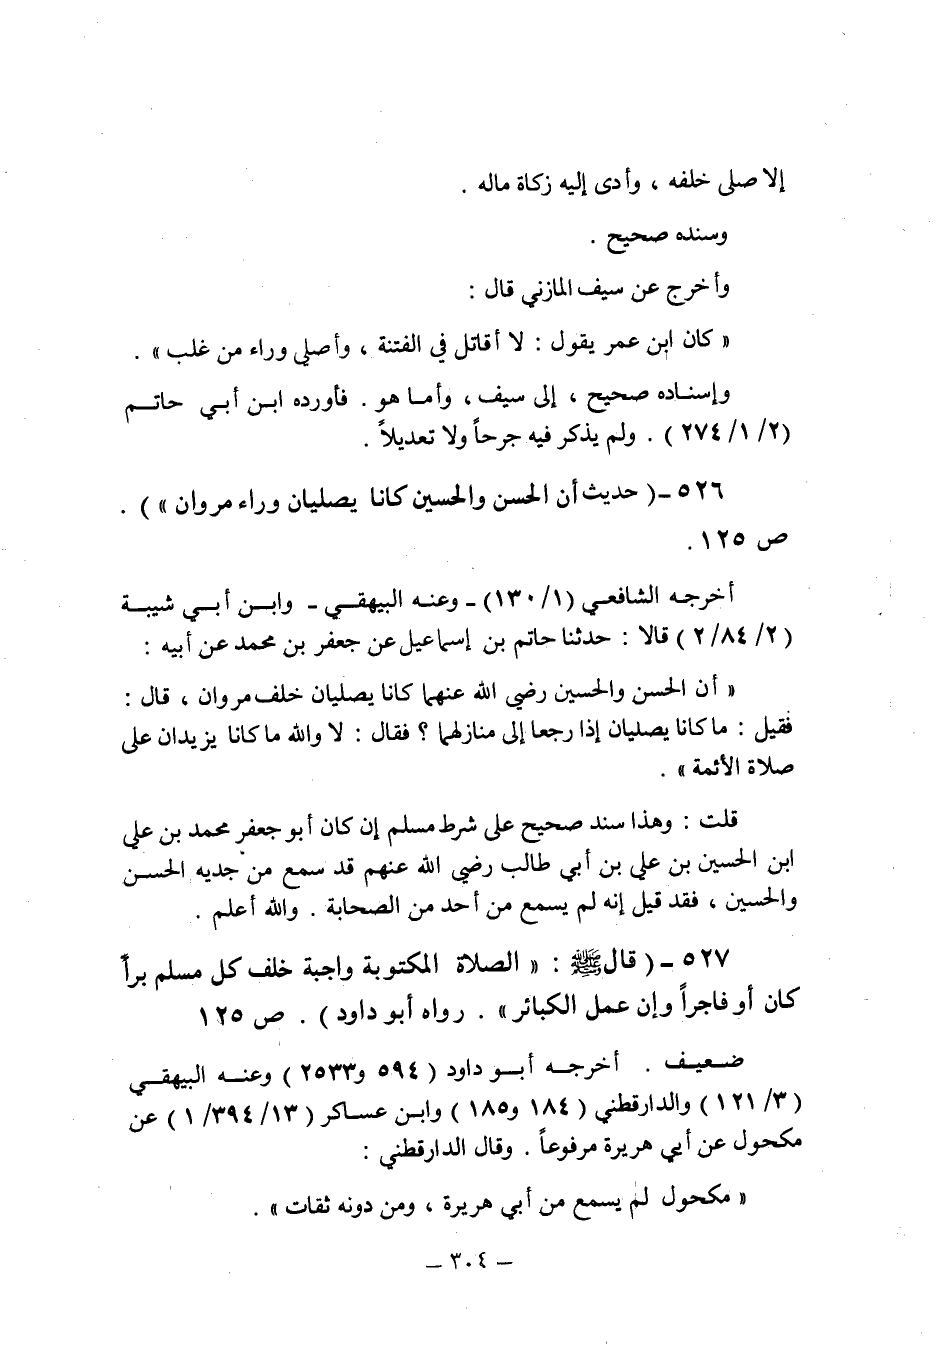 إلا صلى خلفه ، وأدى إليه زكاة ماله .
وسنده صحيح .
وأخرج عن سيف المازني قال :
« كان ابن عمر يقول : لا أقاتل في الفتنة ، وأصلي وراء من غلب » .
وإسناده صحيح ، إلى سيف ، وأما هو . فأورده ابن أبي حاتم
(٢/ ١/ ٢٧٤ ) . ولم يذكر فيه جرحاً ولا تعديلاً .
٥٢٦ - ( حديث أن الحسن والحسين كانا يصليان وراء مروان » ) .
ص ١٢٥ .
أخرجه الشافعي (١/ ١٣٠) - وعنه البيهقي - وابن أبي شيبة
(٢/ ٨٤/ ٢ ) قالا : حدثنا حاتم بن إسماعيل عن جعفر بن محمد عن أبيه :
« أن الحسن والحسين رضي الله عنهما كانا يصليان خلف مروان ، قال :
فقيل : ما كانا يصليان إذا رجعا إلى منازلهما ؟ فقال : لا والله ما كانا يزيدان على
صلاة الأئمة » .
قلت : وهذا سند صحيح على شرط مسلم إن كان أبو جعفر محمد بن علي
ابن الحسين بن علي بن أبي طالب رضي الله عنهم قد سمع من جديه الحسن
والحسين ، فقد قيل إنه لم يسمع من أحد من الصحابة . والله أعلم .
٥٢٧ - ( قال ﷺ : « الصلاة المكتوبة واجبة خلف كل مسلم براً
كان أو فاجراً وإن عمل الكبائر » . رواه أبو داود ) . ص ١٢٥
ضعيف . أخرجه أبو داود ( ٥٩٤ و٢٥٣٣ ) وعنه البيهقي
(٣/ ١٢١ ) والدارقطني ( ١٨٤ و١٨٥ ) وابن عساكر ( ١٣/ ٣٩٤/ ١ ) عن
مكحول عن أبي هريرة مرفوعاً . وقال الدارقطني :
« مكحول لم يسمع من أبي هريرة ، ومن دونه ثقات » .
– ٣٠٤ –